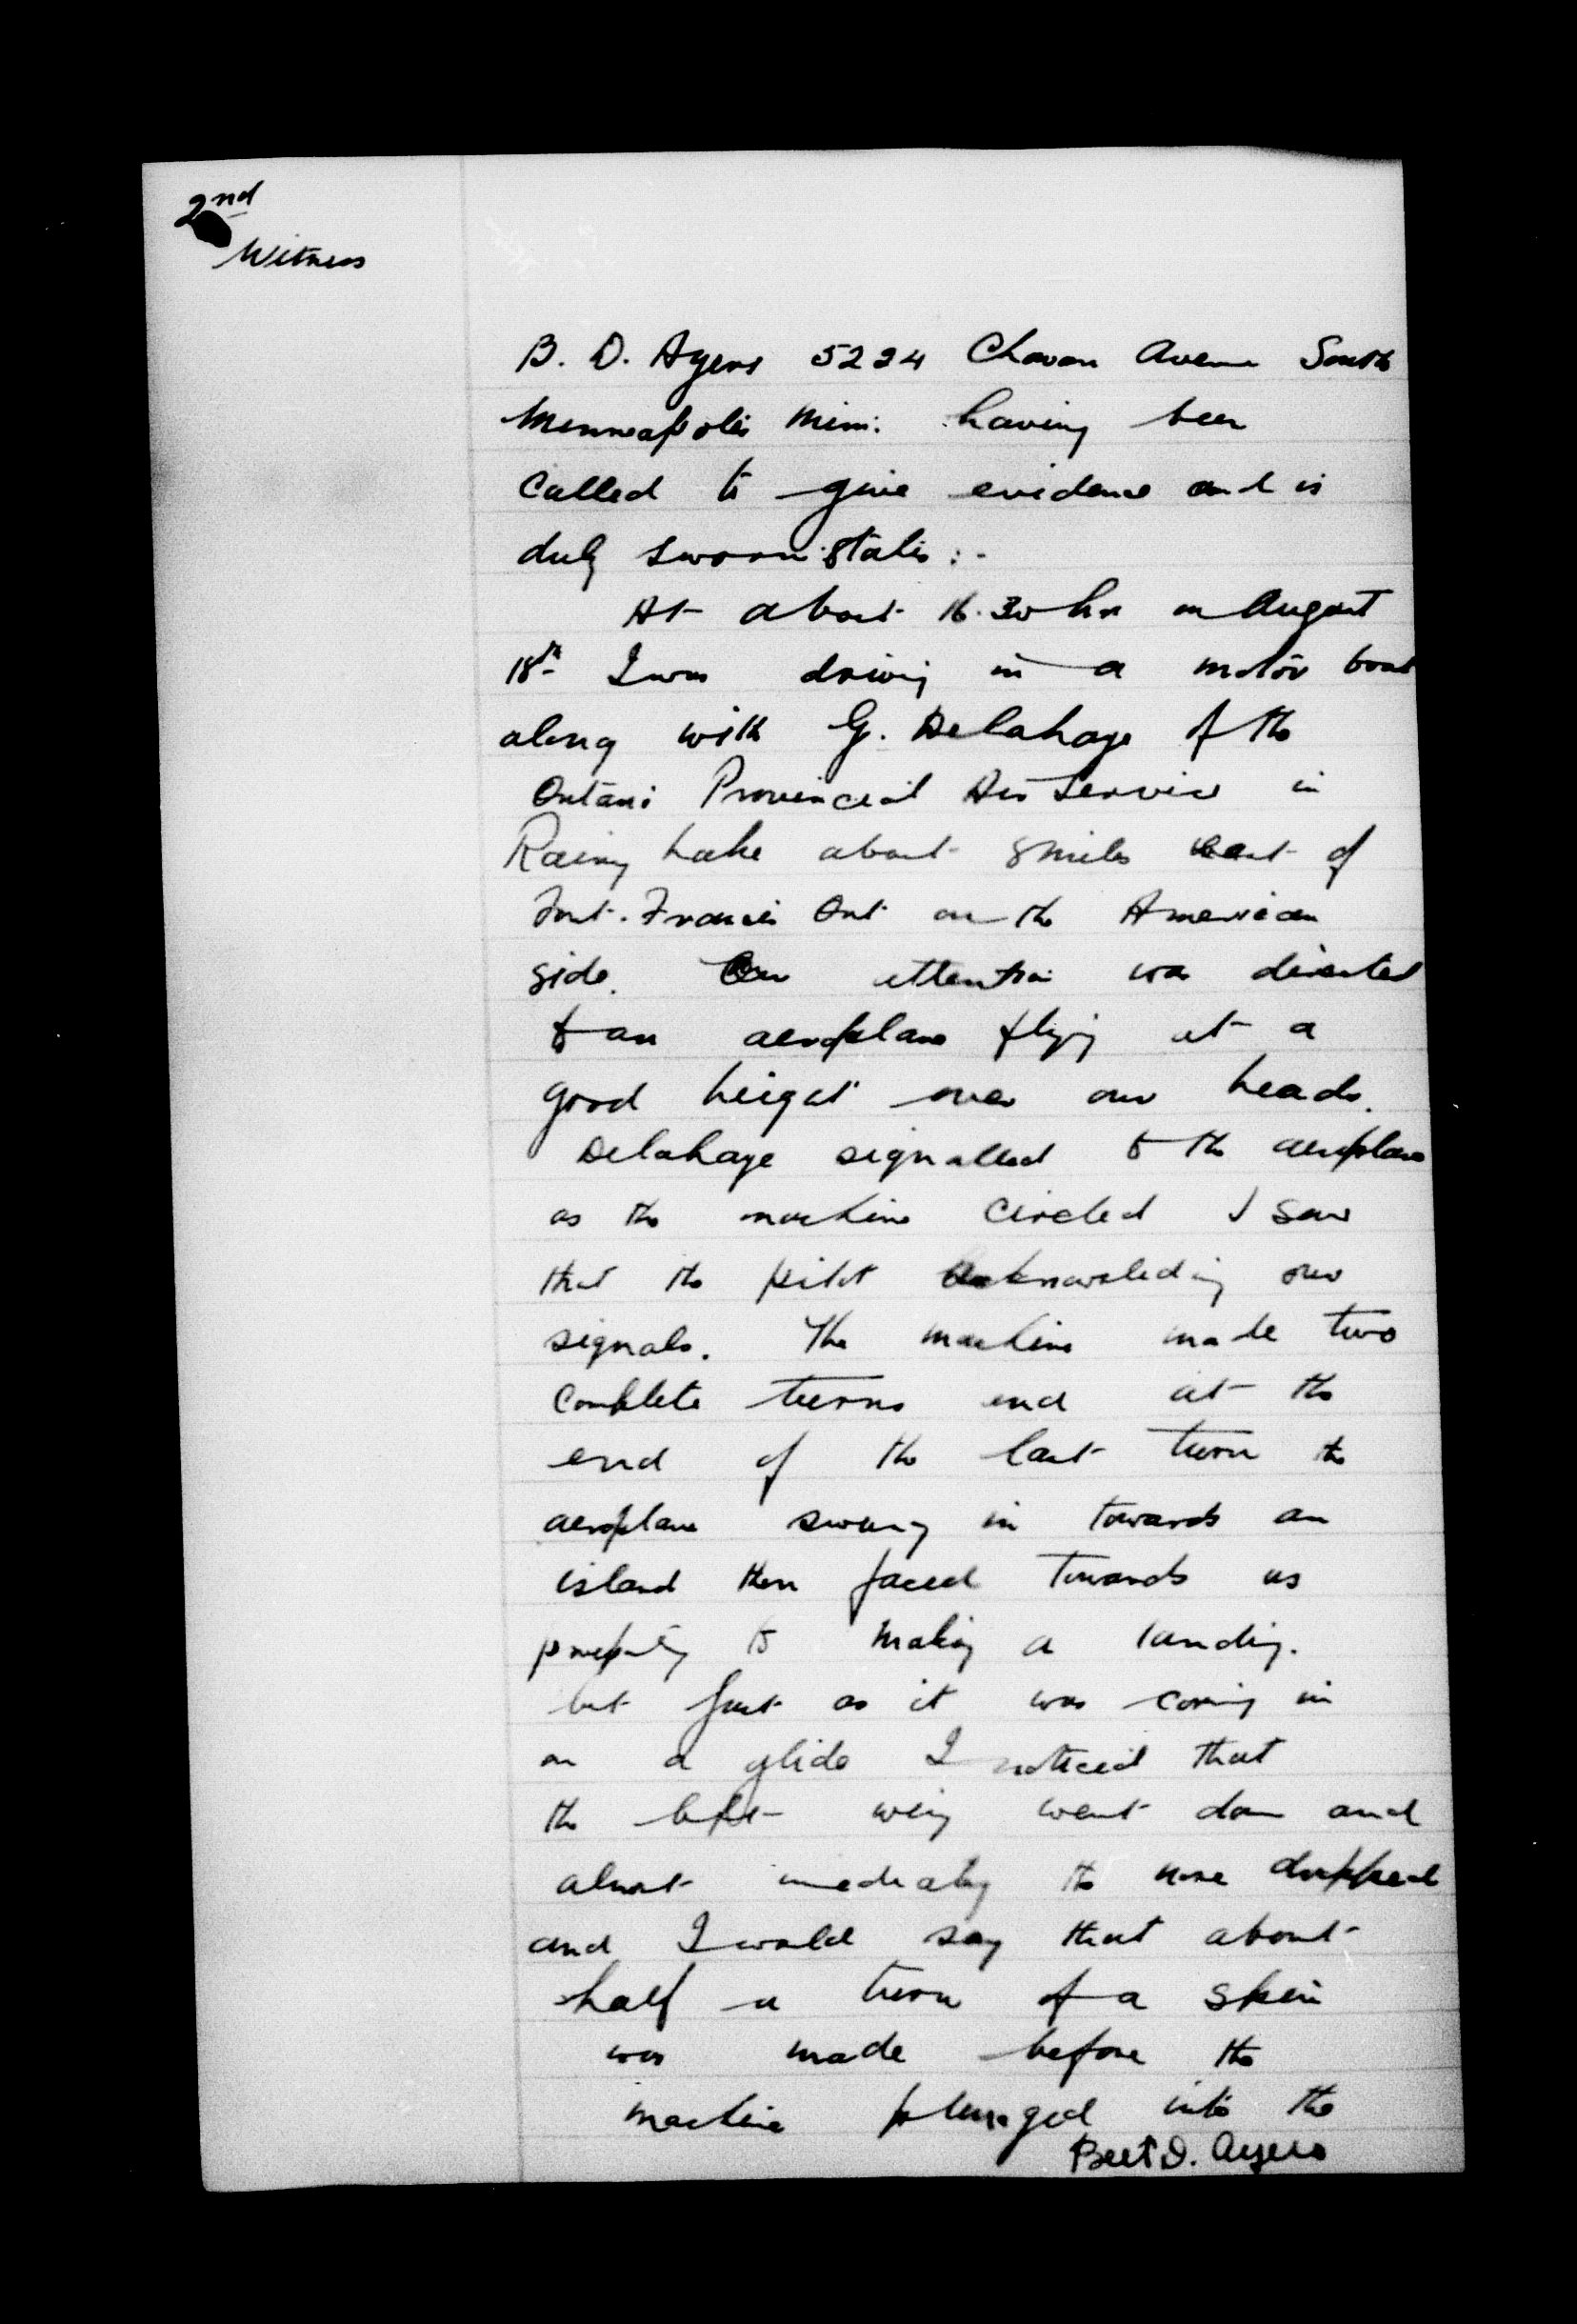 2nd
Witness
B. D. Ayers 5224 Avenue South
Minneapolis Minn. having been
called to give evidence and is
duly sworn states :-
At about 16.30 hrs on August
18th I was driving in a motor boat
along with G. Delahaye of the
Ontario Provincial Air Service in
Rainy Lake about 8 miles of
Fort. Francis Ont on the American
side. Our attention was directed
to an aeroplane flying at a
good height over our heads.
Delahaye signalled to the aeroplane
as the machine circled I saw
that the pilot acknowleding our
signals. The machine made two
complete turns and at the
end of the last turn the
aeroplane swung in towards an
island then faced towards us
to making a landing.
but just as it was coming in
on a glide I noticed that
the left wing went down and
almost the nose dropped
and I would say that about
half a turn of a spin
was made before the
machine plunged into the
Bert D. Ayers